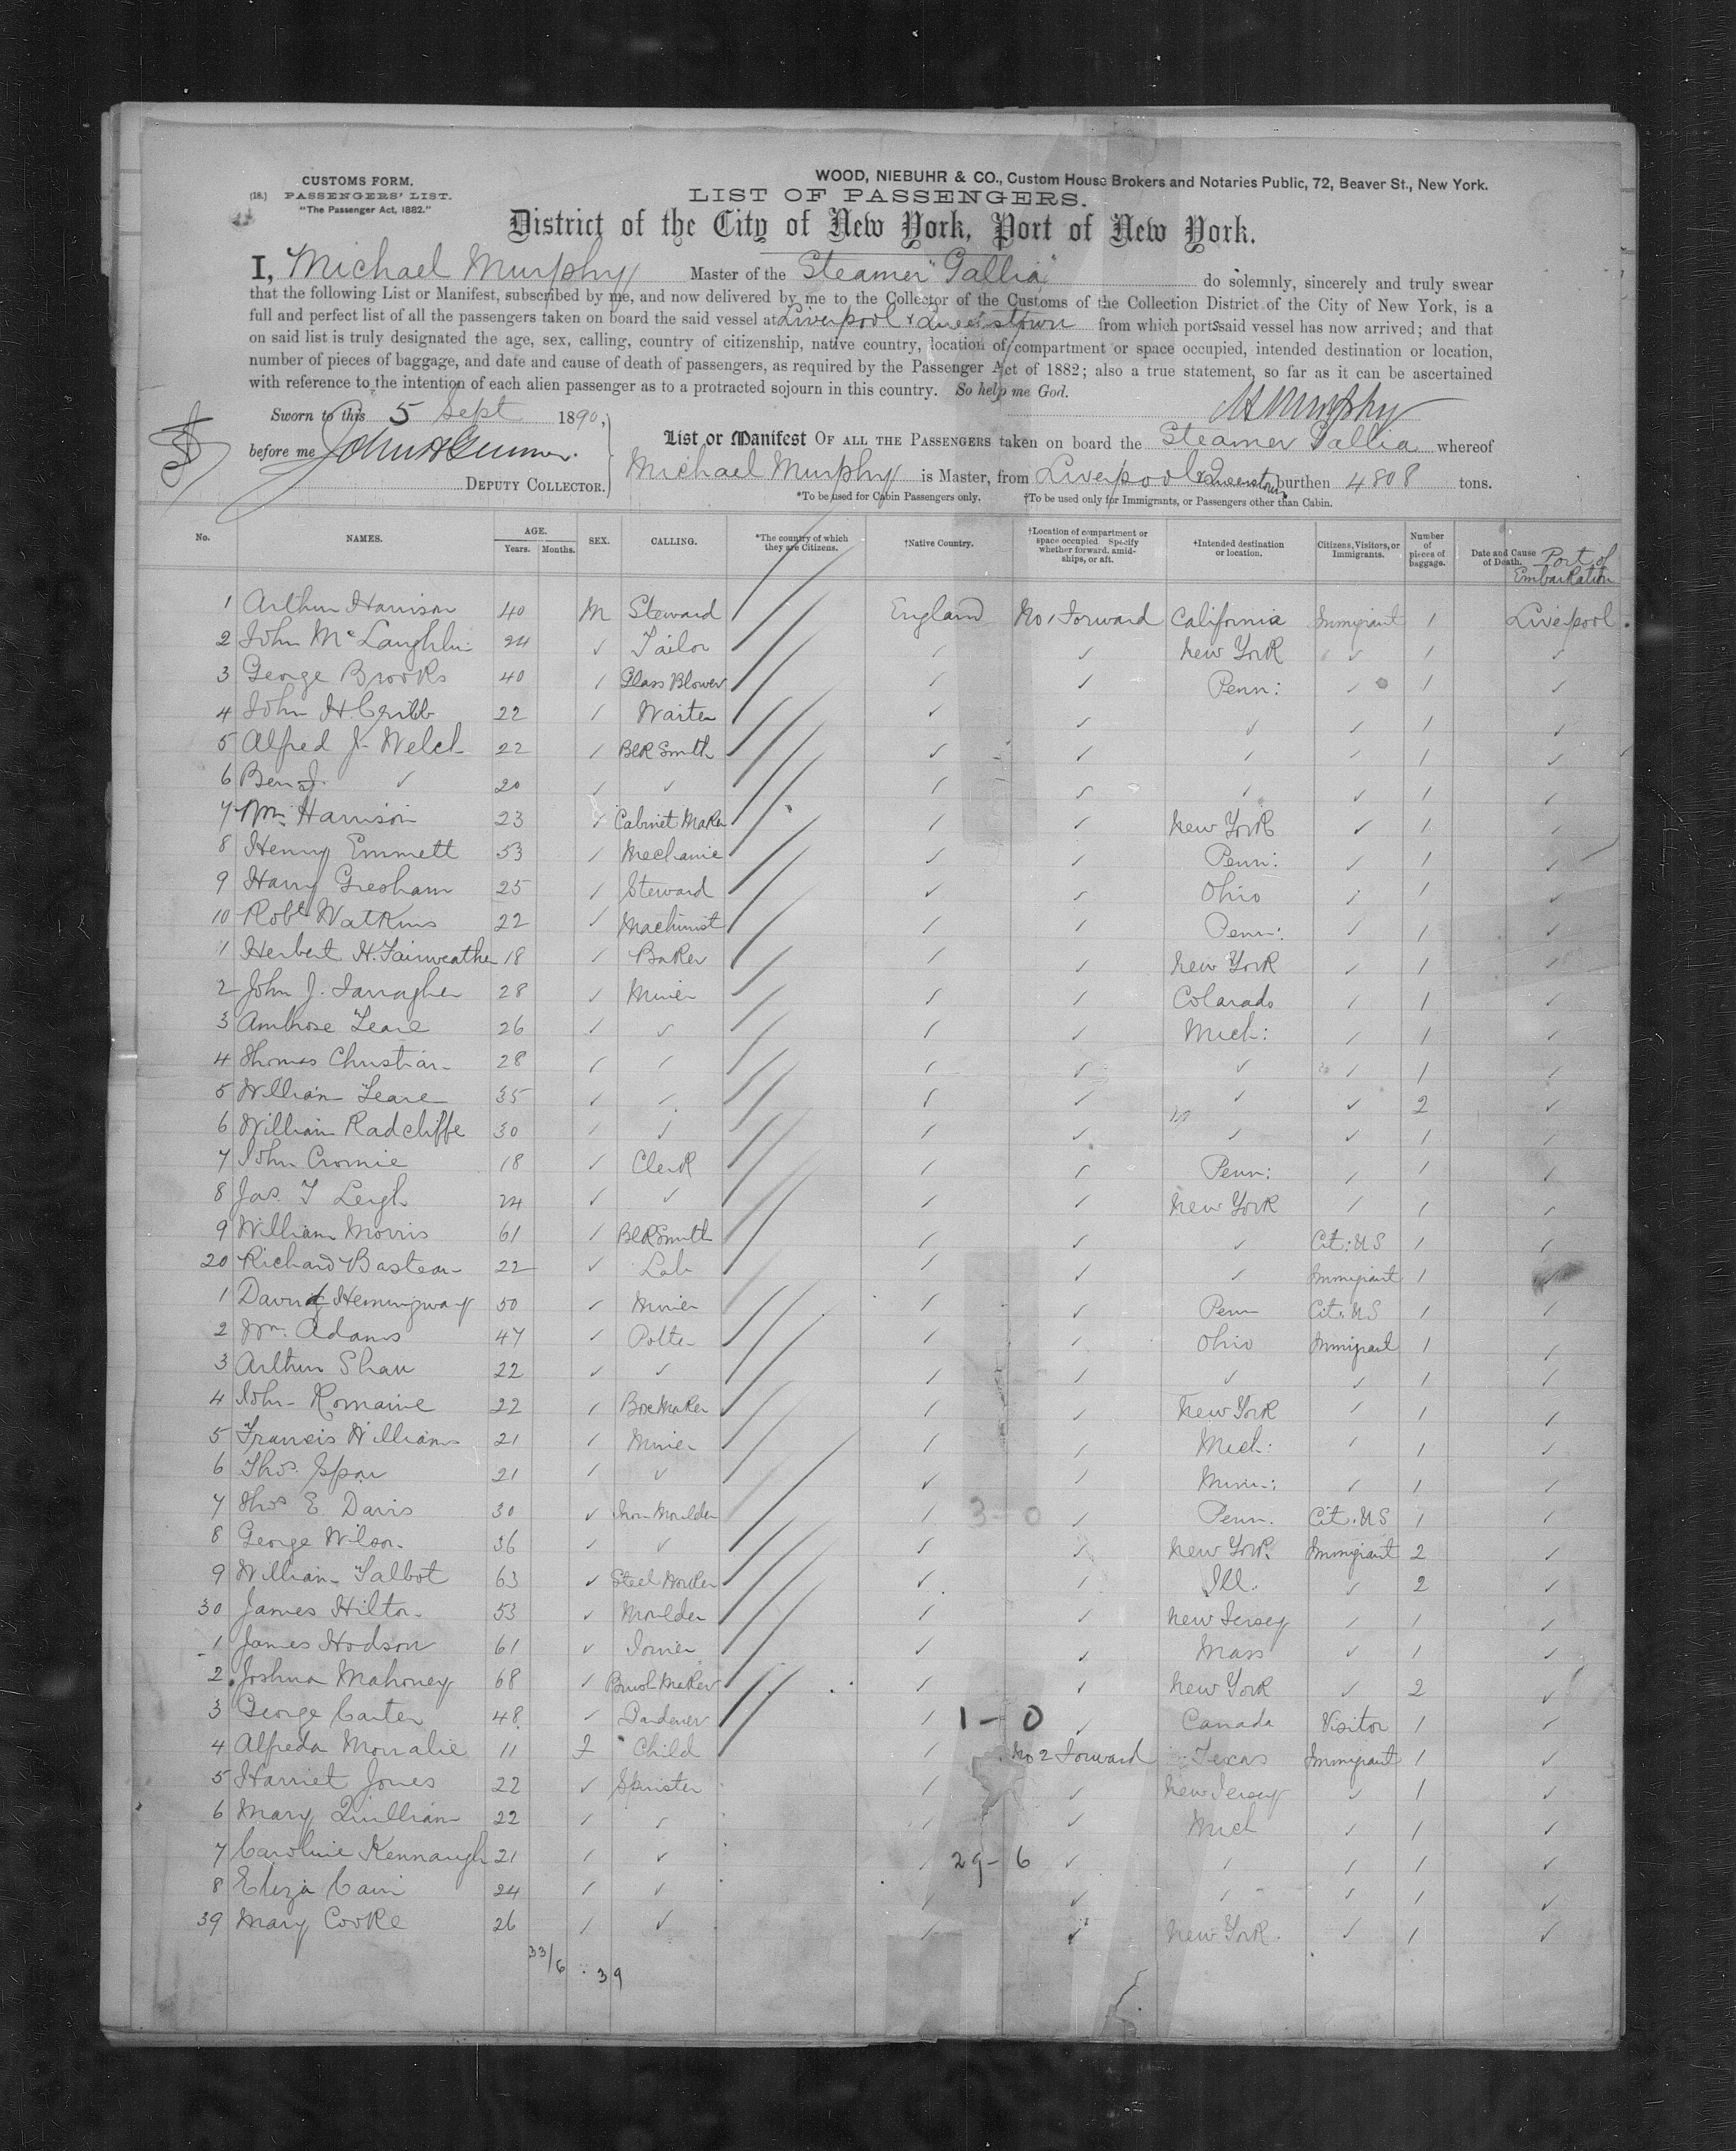 CUSTOMS FORM.
(18.) PASSENGERS' LIST.
"The Passenger Act, 1882."
WOOD, NIEBUHR & CO., Custom House Brokers and Notaries Public, 72, Beaver St., New York.
LIST OF PASSENGERS.
District of the City of New York, Port of New York.
I, Michael Murphy Master of the Steamer "Gallia" do solemnly, sincerely and truly swear
that the following List or Manifest, subscribed by me, and now delivered by me to the Collector of the Customs of the Collection District of the City of New York, is a
full and perfect list of all the passengers taken on board the said vessel at Liverpool & Queenstown from which ports said vessel has now arrived; and that
on said list is truly designated the age, sex, calling, country of citizenship, native country, location of compartment or space occupied, intended destination or location,
number of pieces of baggage, and date and cause of death of passengers, as required by the Passenger Act of 1882; also a true statement, so far as it can be ascertained
with reference to the intention of each alien passenger as to a protracted sojourn in this country. So help me God.
M Murphy
Sworn to this 5 Sept 1890,
before me
DEPUTY COLLECTOR.
List or Manifest OF ALL THE PASSENGERS taken on board the Steamer Gallia whereof
Michael Murphy is Master, from Liverpool & Queenstown burthen 4808 tons.
*To be used for Cabin Passengers only. †To be used only for Immigrants, or Passengers other than Cabin.
No. NAMES. AGE. Years. Months. SEX. CALLING. *The country of which they are Citizens. †Native Country. †Location of compartment or space occupied. Specify whether forward, amidships, or aft. †Intended destination or location. Citizens, Visitors, or Immigrants. Number of pieces of baggage. Date and Cause of Death. Port of Embarkation
1 Arthur Harrison 40 M Steward England No 1 Forward California Immigrant 1 Liverpool.
2 John McLaughlin 24 ✓ Tailor ✓ ✓ New York ✓ 1 ✓
3 George Brooks 40 ✓ Glass Blower ✓ ✓ Penn: ✓ 1 ✓
4 John H. Cribb 22 ✓ Waiter ✓ ✓ ✓ ✓ 1 ✓
5 Alfred J. Welch 22 ✓ Blk Smith ✓ ✓ ✓ ✓ 1 ✓
6 Benj. ✓ 20 ✓ ✓ ✓ ✓ ✓ ✓ 1 ✓
7 Wm. Harrison 23 ✓ Cabinet Maker ✓ ✓ New York ✓ 1 ✓
8 Henry Emmett 53 ✓ Mechanic ✓ ✓ Penn: ✓ 1 ✓
9 Harry Gresham 25 ✓ Steward ✓ ✓ Ohio ✓ 1 ✓
10 Robt Watkins 22 ✓ Machinist ✓ ✓ Penn: ✓ 1 ✓
1 Herbert H. Fairweather 18 ✓ Baker ✓ ✓ New York ✓ 1 ✓
2 John J. Farragher 28 ✓ Miner ✓ ✓ Colarado ✓ 1 ✓
3 Ambrose Teare 26 ✓ ✓ ✓ ✓ Mich: ✓ 1 ✓
4 Thomas Christian 28 ✓ ✓ ✓ ✓ ✓ ✓ 1 ✓
5 William Teare 35 ✓ ✓ ✓ ✓ ✓ ✓ 2 ✓
6 William Radcliffe 30 ✓ ✓ ✓ ✓ ✓ ✓ 1 ✓
7 John Cromie 18 ✓ Clerk ✓ ✓ Penn: ✓ 1 ✓
8 Jas. T Leigh 24 ✓ ✓ ✓ ✓ New York ✓ 1 ✓
9 William Morris 61 ✓ Blk Smith ✓ ✓ ✓ Cit: US 1 ✓
20 Richard Bastean 22 ✓ Lab ✓ ✓ ✓ Immigrant 1 ✓
1 David Hemingway 50 ✓ Miner ✓ ✓ Penn Cit: US 1 ✓
2 Wm. Adams 47 ✓ Potter ✓ ✓ Ohio Immigrant 1 ✓
3 Arthur Shaw 22 ✓ ✓ ✓ ✓ ✓ ✓ 1 ✓
4 John Romaine 22 ✓ Box Maker ✓ ✓ New York ✓ 1 ✓
5 Francis Williams 21 ✓ Miner ✓ ✓ Mich: ✓ 1 ✓
6 Thos. 21 ✓ ✓ ✓ ✓ Minn: ✓ 1 ✓
7 Thos E. Davis 30 ✓ Iron Moulder ✓ 3-0 ✓ Penn. Cit: US 1 ✓
8 George Wilson 36 ✓ ✓ ✓ ✓ New York. Immigrant 2 ✓
9 William Talbot 63 ✓ Steel Worker ✓ ✓ Ill. ✓ 2 ✓
30 James Hilton 53 ✓ Moulder ✓ ✓ New Jersey ✓ 1 ✓
1 James Hodson 61 ✓ Joiner ✓ ✓ Mass ✓ 1 ✓
2 Joshua Mahoney 68 ✓ Brush Maker ✓ ✓ New York ✓ 2 ✓
3 George Carter 48 ✓ Gardener ✓ 1-0 ✓ Canada Visitor 1 ✓
4 Alfreda Morralie 11 F Child ✓ No 2 Forward Texas Immigrant 1 ✓
5 Harriet Jones 22 ✓ Spinster ✓ ✓ New Jersey ✓ 1 ✓
6 Mary Quilliam 22 ✓ ✓ ✓ ✓ Mich ✓ 1 ✓
7 Caroline Kennaugh 21 ✓ ✓ ✓ 29-6 ✓ ✓ ✓ 1 ✓
8 Eliza Cain 24 ✓ ✓ ✓ ✓ ✓ ✓ 1 ✓
39 Mary Cooke 26 ✓ ✓ ✓ ✓ New York ✓ 1 ✓
33/6 39